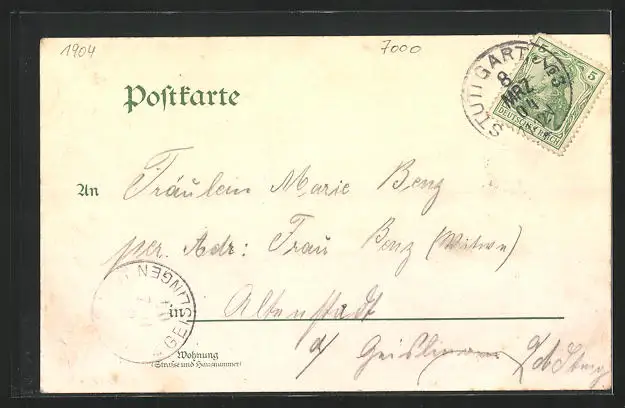 1904 7000
Postkarte
STUTTGART. No 3
8
MRZ
04
5
DEUTSCHES REICH
An Fräulein Marie Benz
per. Adr: Frau Benz (Witwe)
in Altenstadt
a/ Geislingen a/d Steig
GEISLINGEN
Wohnung
(Straße und Hausnummer)